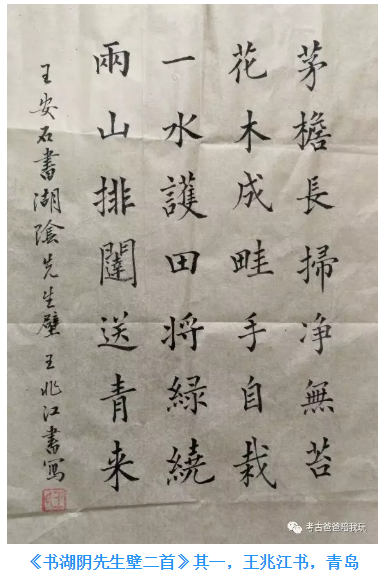 茅檐長掃净無苔
花木成畦手自栽
一水護田将緑繞
兩山排闥送青来
王安石書湖陰先生壁 王兆江書寫
考古爸爸陪我玩
《书湖阴先生壁二首》其一，王兆江书，青岛